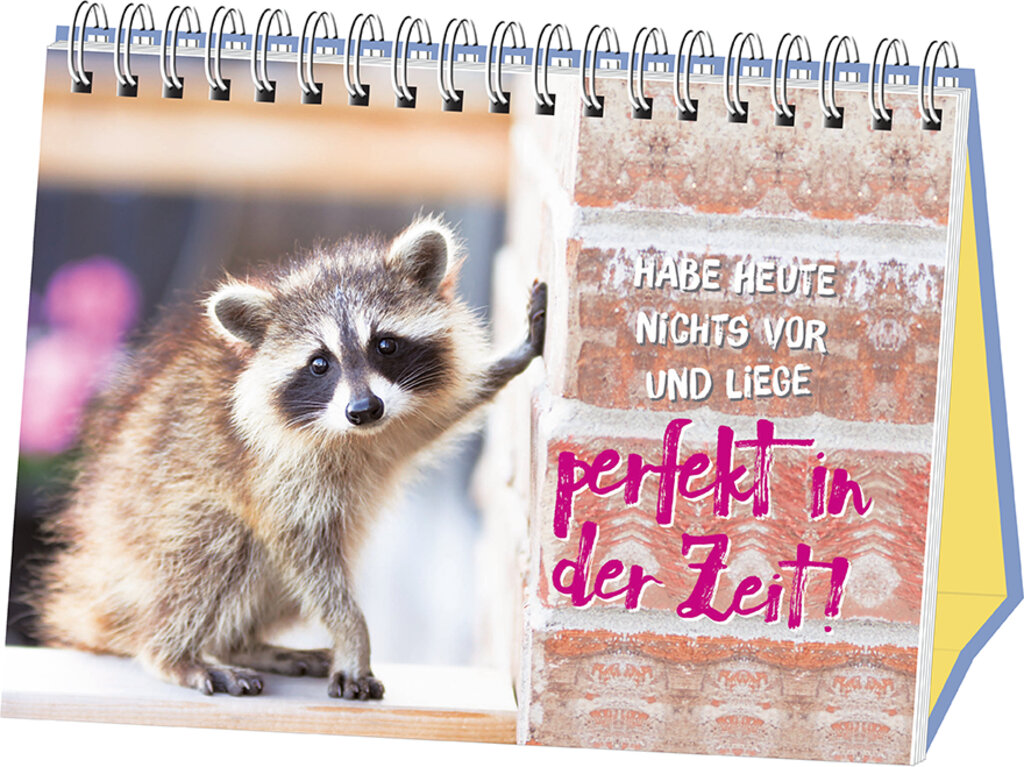 HABE HEUTE
NICHTS VOR
UND LIEGE
perfekt in
der Zeit!